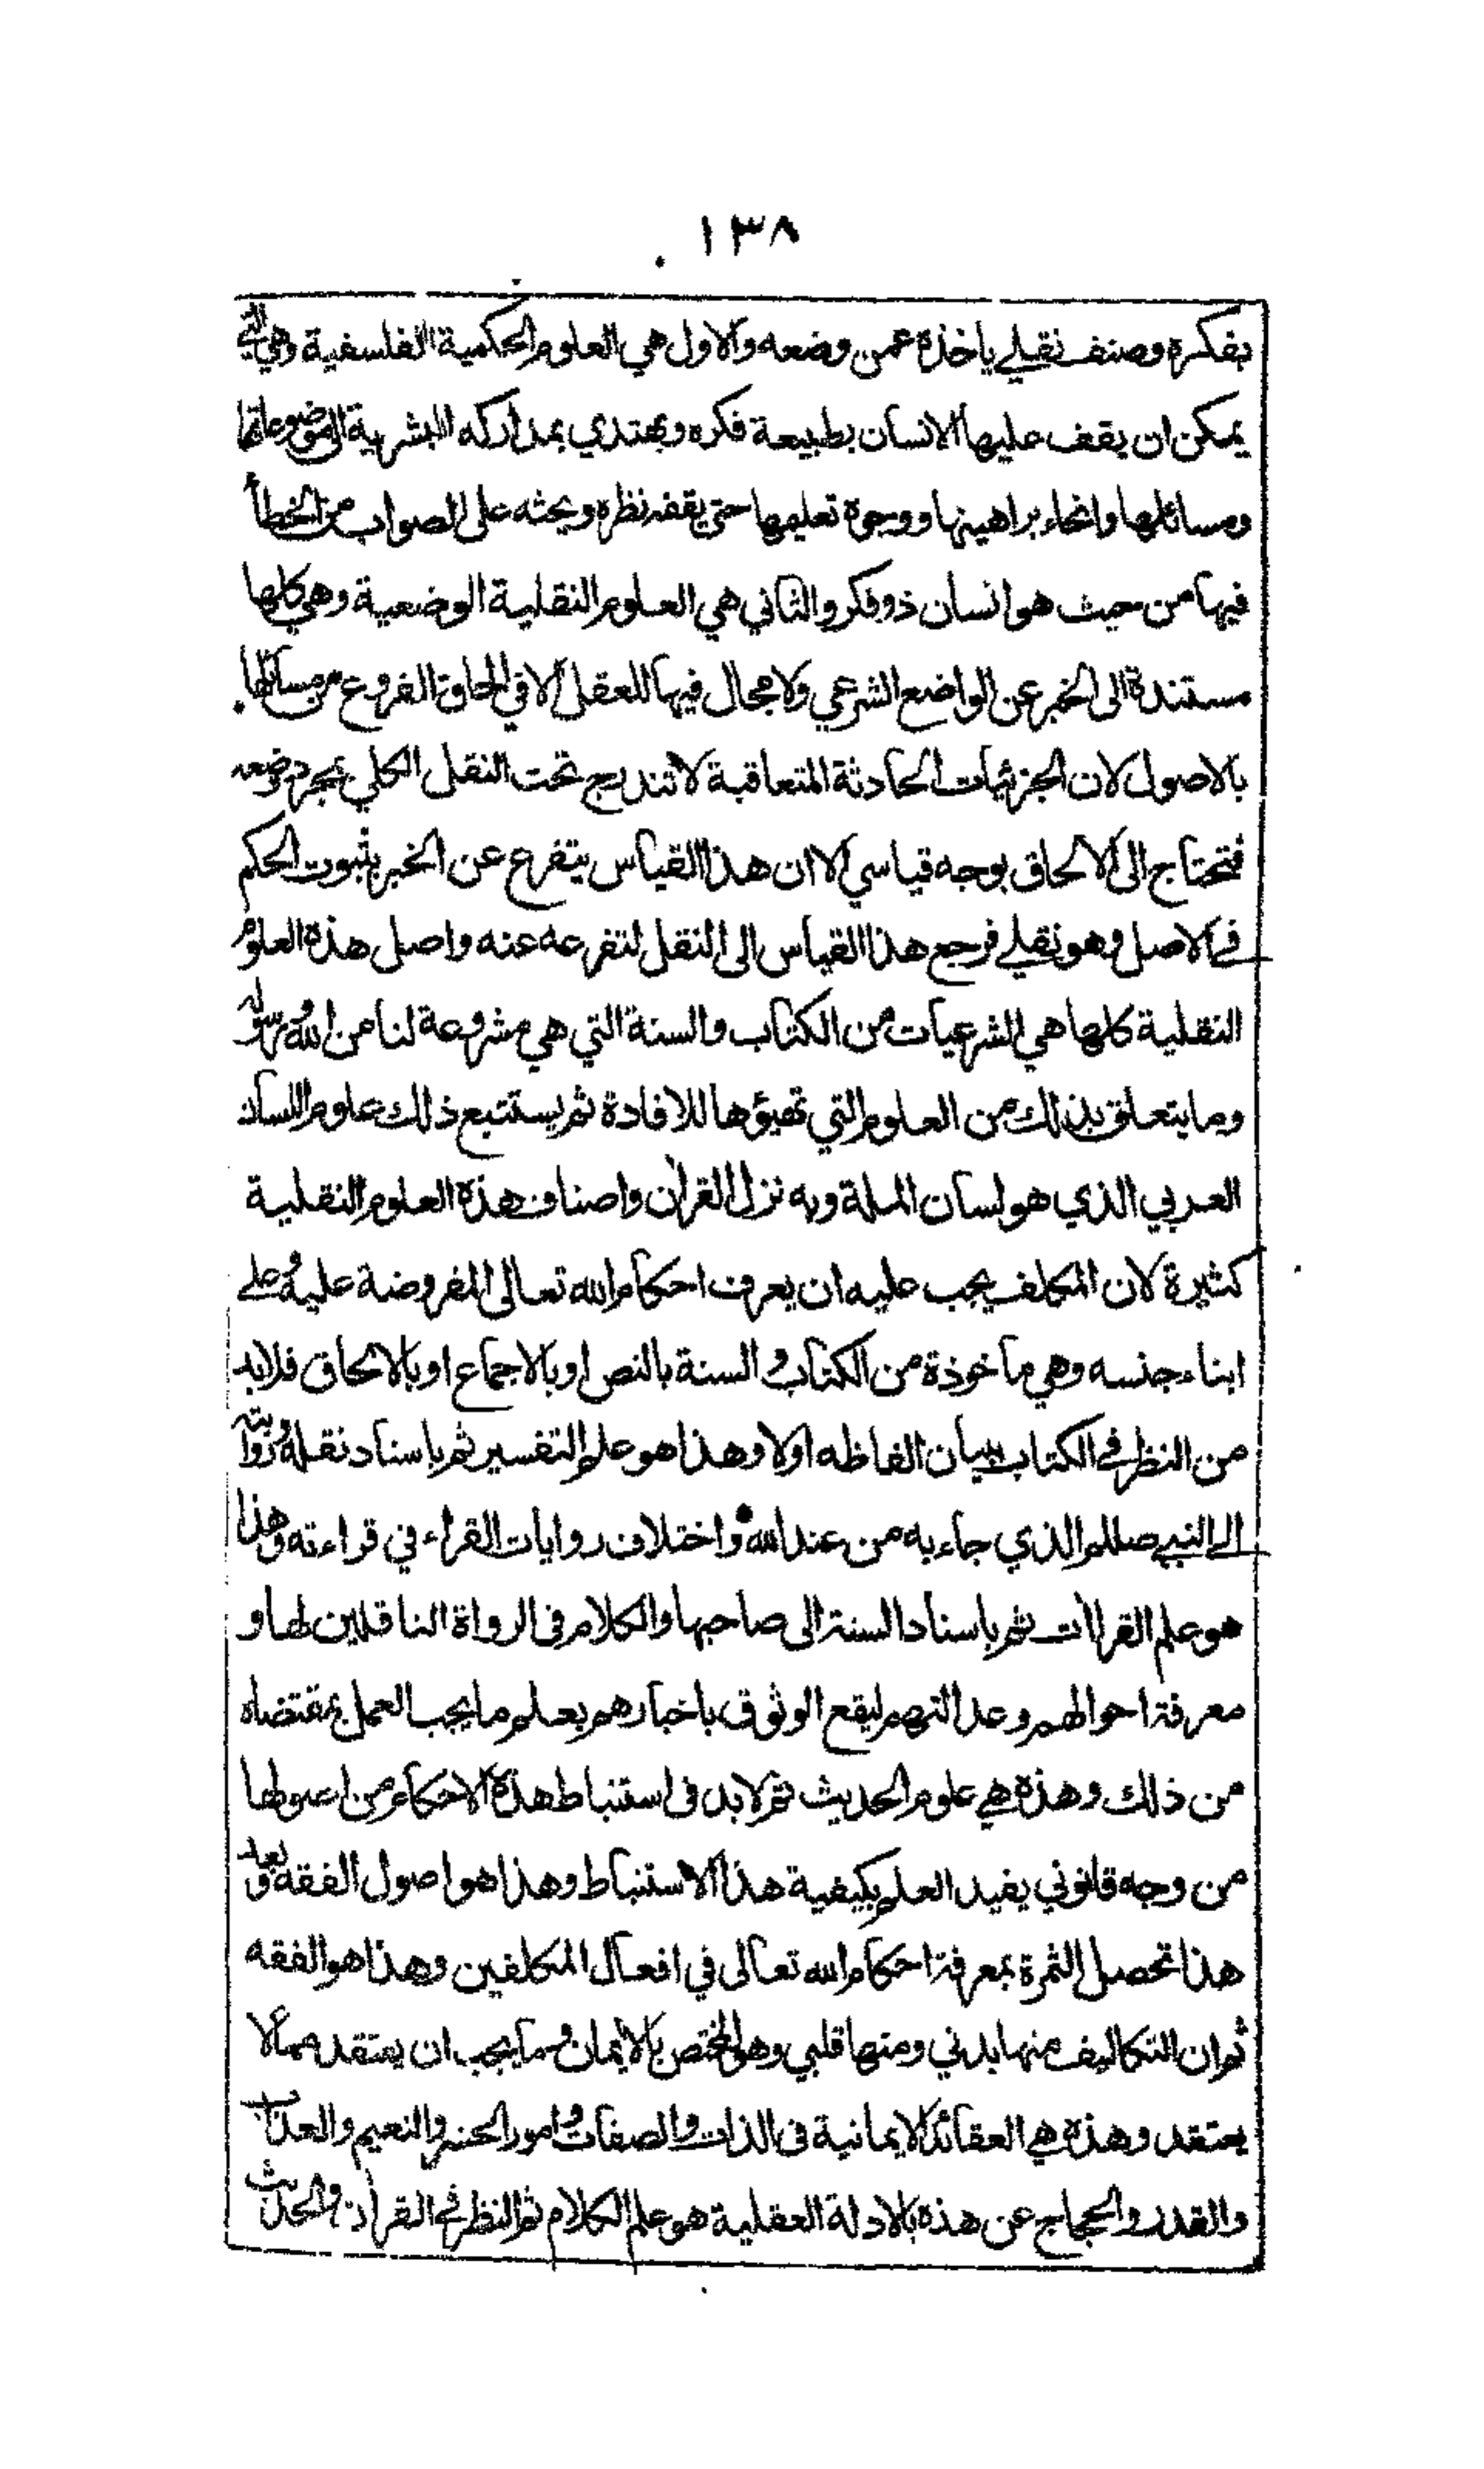 ١٣٨
بفكره وصنف نقلي ياخذه عمن وضعه والاول هي العلوم الحكمية الفلسفية وهي التي
يمكن ان يقف عليها الانسان بطبيعة فكره ويهتدي بمداركه البشرية الى موضوعاتها
ومسائلها وانحاء براهينها ووجوه تعليمها حتى يقفه نظره وبحثه على الصواب من الخطأ
فيها من حيث هو انسان ذو فكر والثاني هي العلوم النقلية الوضعية وهي كلها
مستندة الى الخبر عن الواضع الشرعي ولا مجال فيها للعقل الا في الحاق الفروع من مسائلها
بالاصول لان الجزئيات الحادثة المتعاقبة لا تندرج تحت النقل الكلي بمجرد وضعه
فتحتاج الى الالحاق بوجه قياسي الا ان هذا القياس يتفرع عن الخبر بثبوت الحكم
في الاصل وهو نقلي فرجع هذا القياس الى النقل لتفرعه عنه واصل هذه العلوم
النقلية كلها هي الشرعيات من الكتاب والسنة التي هي مشروعة لنا من الله ورسوله
وما يتعلق بذلك من العلوم التي تهيؤها للافادة ثم يستتبع ذلك علوم اللسان
العربي الذي هو لسان الملة وبه نزل القرآن واصناف هذه العلوم النقلية
كثيرة لان المكلف يجب عليه ان يعرف احكام الله تعالى المفروضة عليه وعلى
ابناء جنسه وهي مأخوذة من الكتاب والسنة بالنص او بالاجماع او بالالحاق فلابد
من النظر في الكتاب ببيان الفاظه اولا وهذا هو علم التفسير ثم باسناد نقله وروايته
الى النبي صللم الذي جاء به من عند الله واختلاف روايات القراء في قراءته وهذا
هو علم القراات ثم باسناد السنة الى صاحبها والكلام في الرواة الناقلين لها و
معرفة احوالهم وعدالتهم ليقع الوثوق باخبارهم بعلم ما يجب العمل بمقتضاه
من ذلك وهذه هي علوم الحديث ثم لابد في استنباط هذه الاحكام من اصولها
من وجه قانوني يفيد العلم بكيفية هذا الاستنباط وهذا هو اصول الفقه وبعد
هذا تحصل الثمرة بمعرفة احكام الله تعالى في افعال المكلفين وهذا هو الفقه
ثم ان التكاليف منها بدني ومنها قلبي وهو المختص بالايمان وما يجب ان يعتقد مما لا
يعتقد وهذه هي العقائد الايمانية في الذات والصفات وامور الحشر والنعيم والعذاب
والقدر والحجاج عن هذه بالادلة العقلية هو علم الكلام ثم النظر في القرآن والحديث